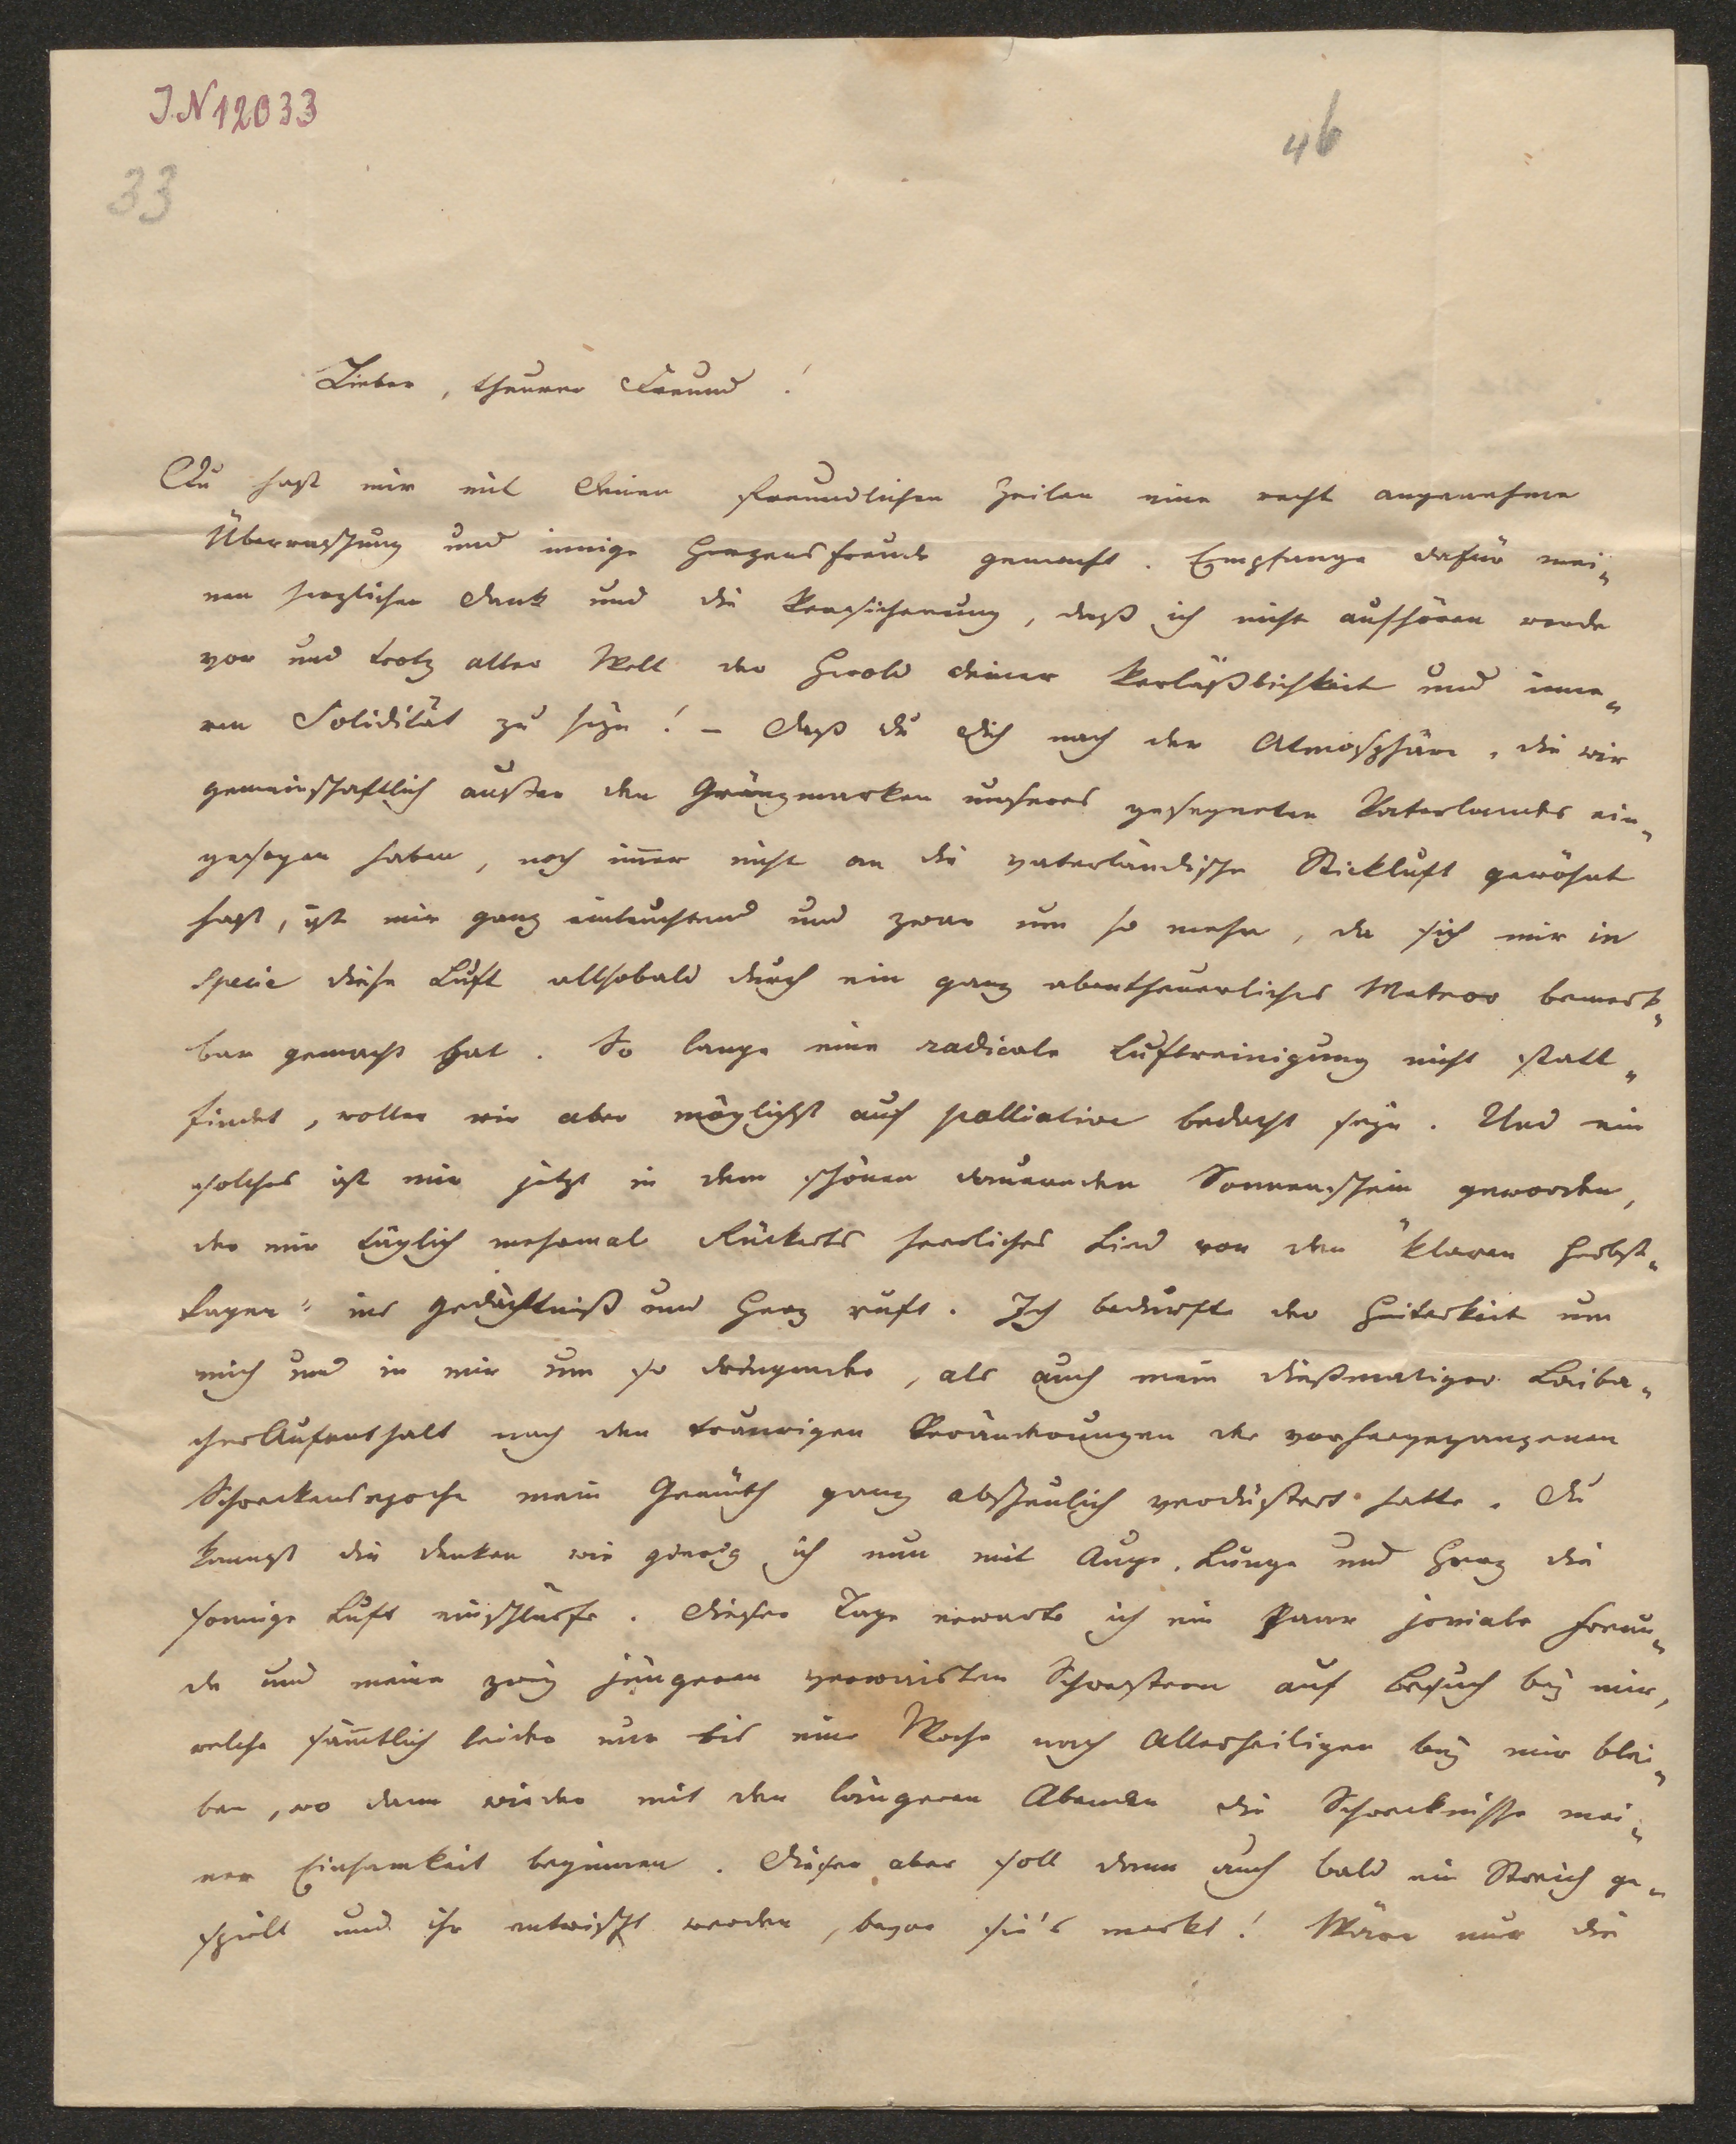 I.N 12033
46
33
Lieber, theurer Freund!
Du hast mir mit Deinen freundlichen Zeilen eine recht angenehme
Überraschung und innige Herzensfreude gemacht. Empfange dafür mei„
nen herzlichen Dank und die Versicherung, daß ich nicht aufhören werde
vor und trotz aller Welt der Herold deiner Verläßlichkeit und inne„
ren Solidität zu seyn! – Daß du dich nach der Atmosphäre, die wir
gemeinschaftlich außer den Gränzmarken unseres gesegneten Vaterlandes ein„
gesogen haben, noch im̅er nicht an die vaterländische Stickluft gewöhnt
hast, ist mir ganz einleuchtend und zwar um so mehr, da sich mir in
specie diese Luft allsobald durch ein ganz abentheuerliches Meteor bemerk„
bar gemacht hat. So lange eine radicale Luftreinigung nicht statt„
findet, wollen wir aber möglichst auf palliative bedacht seyn. Und ein
solches ist mir jetzt in dem schönen dauernden Sonnenschein geworden,
der mir täglich mehrmal Rückerts herrliches Lied von den "klaren Herbst„
tagen" ins Gedächtniß und Herz ruft. Ich bedurfte der Heiterkeit um
mich und in mir um so dringender, als auch mein dießmaliger Laiba„
cher Aufenthalt nach den traurigen Veränderungen der vorhergegangenen
Schreckensepoche mein Gemüth ganz abscheulich verdüstert hatte. Du
kannst dir denken wie gierig ich nun mit Auge, Lunge und Herz die
sonnige Luft einschlürfe. Dieser Tage erwarte ich ein Paar joviale Freun„
de und meine zwey jüngeren verwaisten Schwestern auf Besuch bey mir,
welche säm̅tlich leider nur bis eine Woche nach Allerheiligen bey mir blei„
ben, wo dann wieder mit den längeren Abenden die Schrecknisse mei„
ner Einsamkeit beginnen. Dieser aber soll dann auch bald ein Streich ge„
spielt und ihr entwischt werden, bevor sie's merkt! Wäre nur die